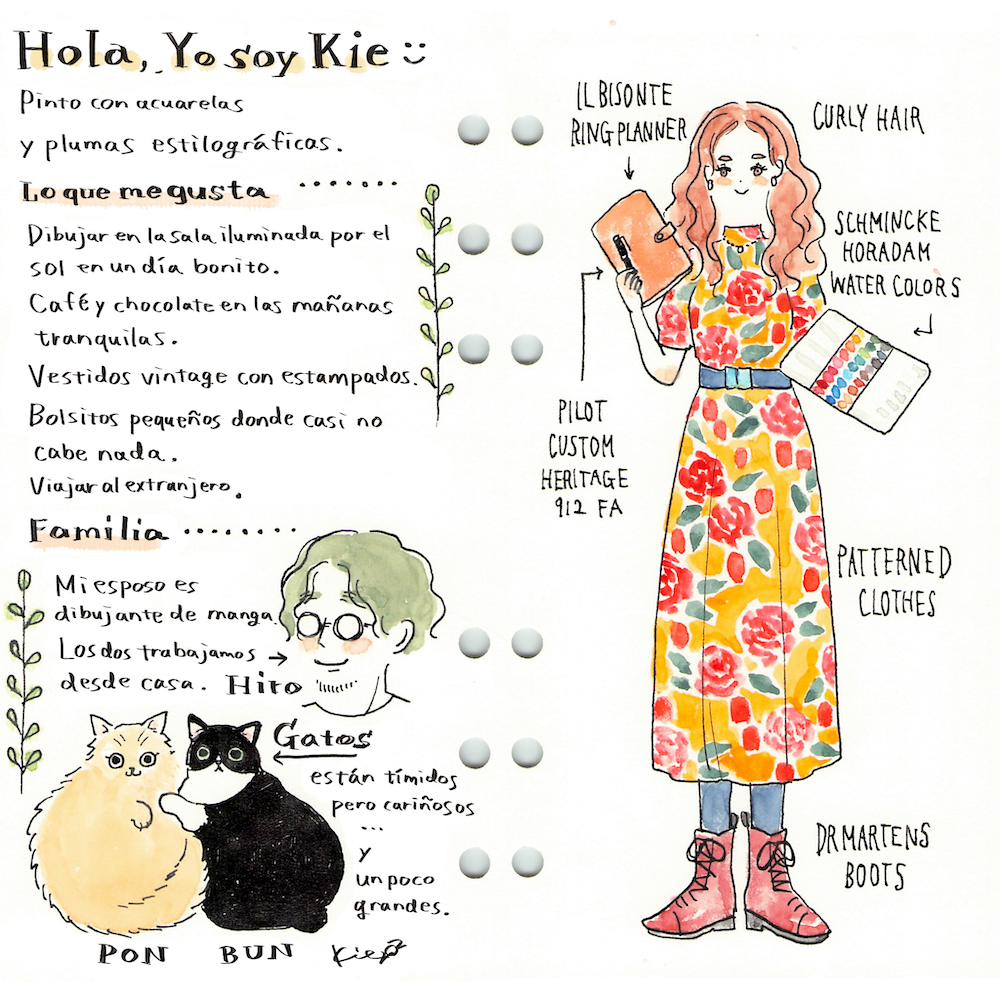 Hola, Yo soy Kie
Pinto con acuarelas
y plumas estilográficas.
Lo que me gusta ·······
Dibujar en la sala iluminada por el
sol en un día bonito.
Café y chocolate en las mañanas
tranquilas.
Vestidos vintage con estampados.
Bolsitos pequeños donde casi no
cabe nada.
Viajar al extranjero.
Familia ········
Mi esposo es
dibujante de manga.
Los dos trabajamos →
desde casa. Hiro
Gatos
están tímidos
pero cariñosos
...
y
un poco
grandes.
PON BUN Kie
IL BISONTE
RING PLANNER
CURLY HAIR
SCHMINCKE
HORADAM
WATER COLORS
PILOT
CUSTOM
HERITAGE
912 FA
PATTERNED
CLOTHES
DR MARTENS
BOOTS